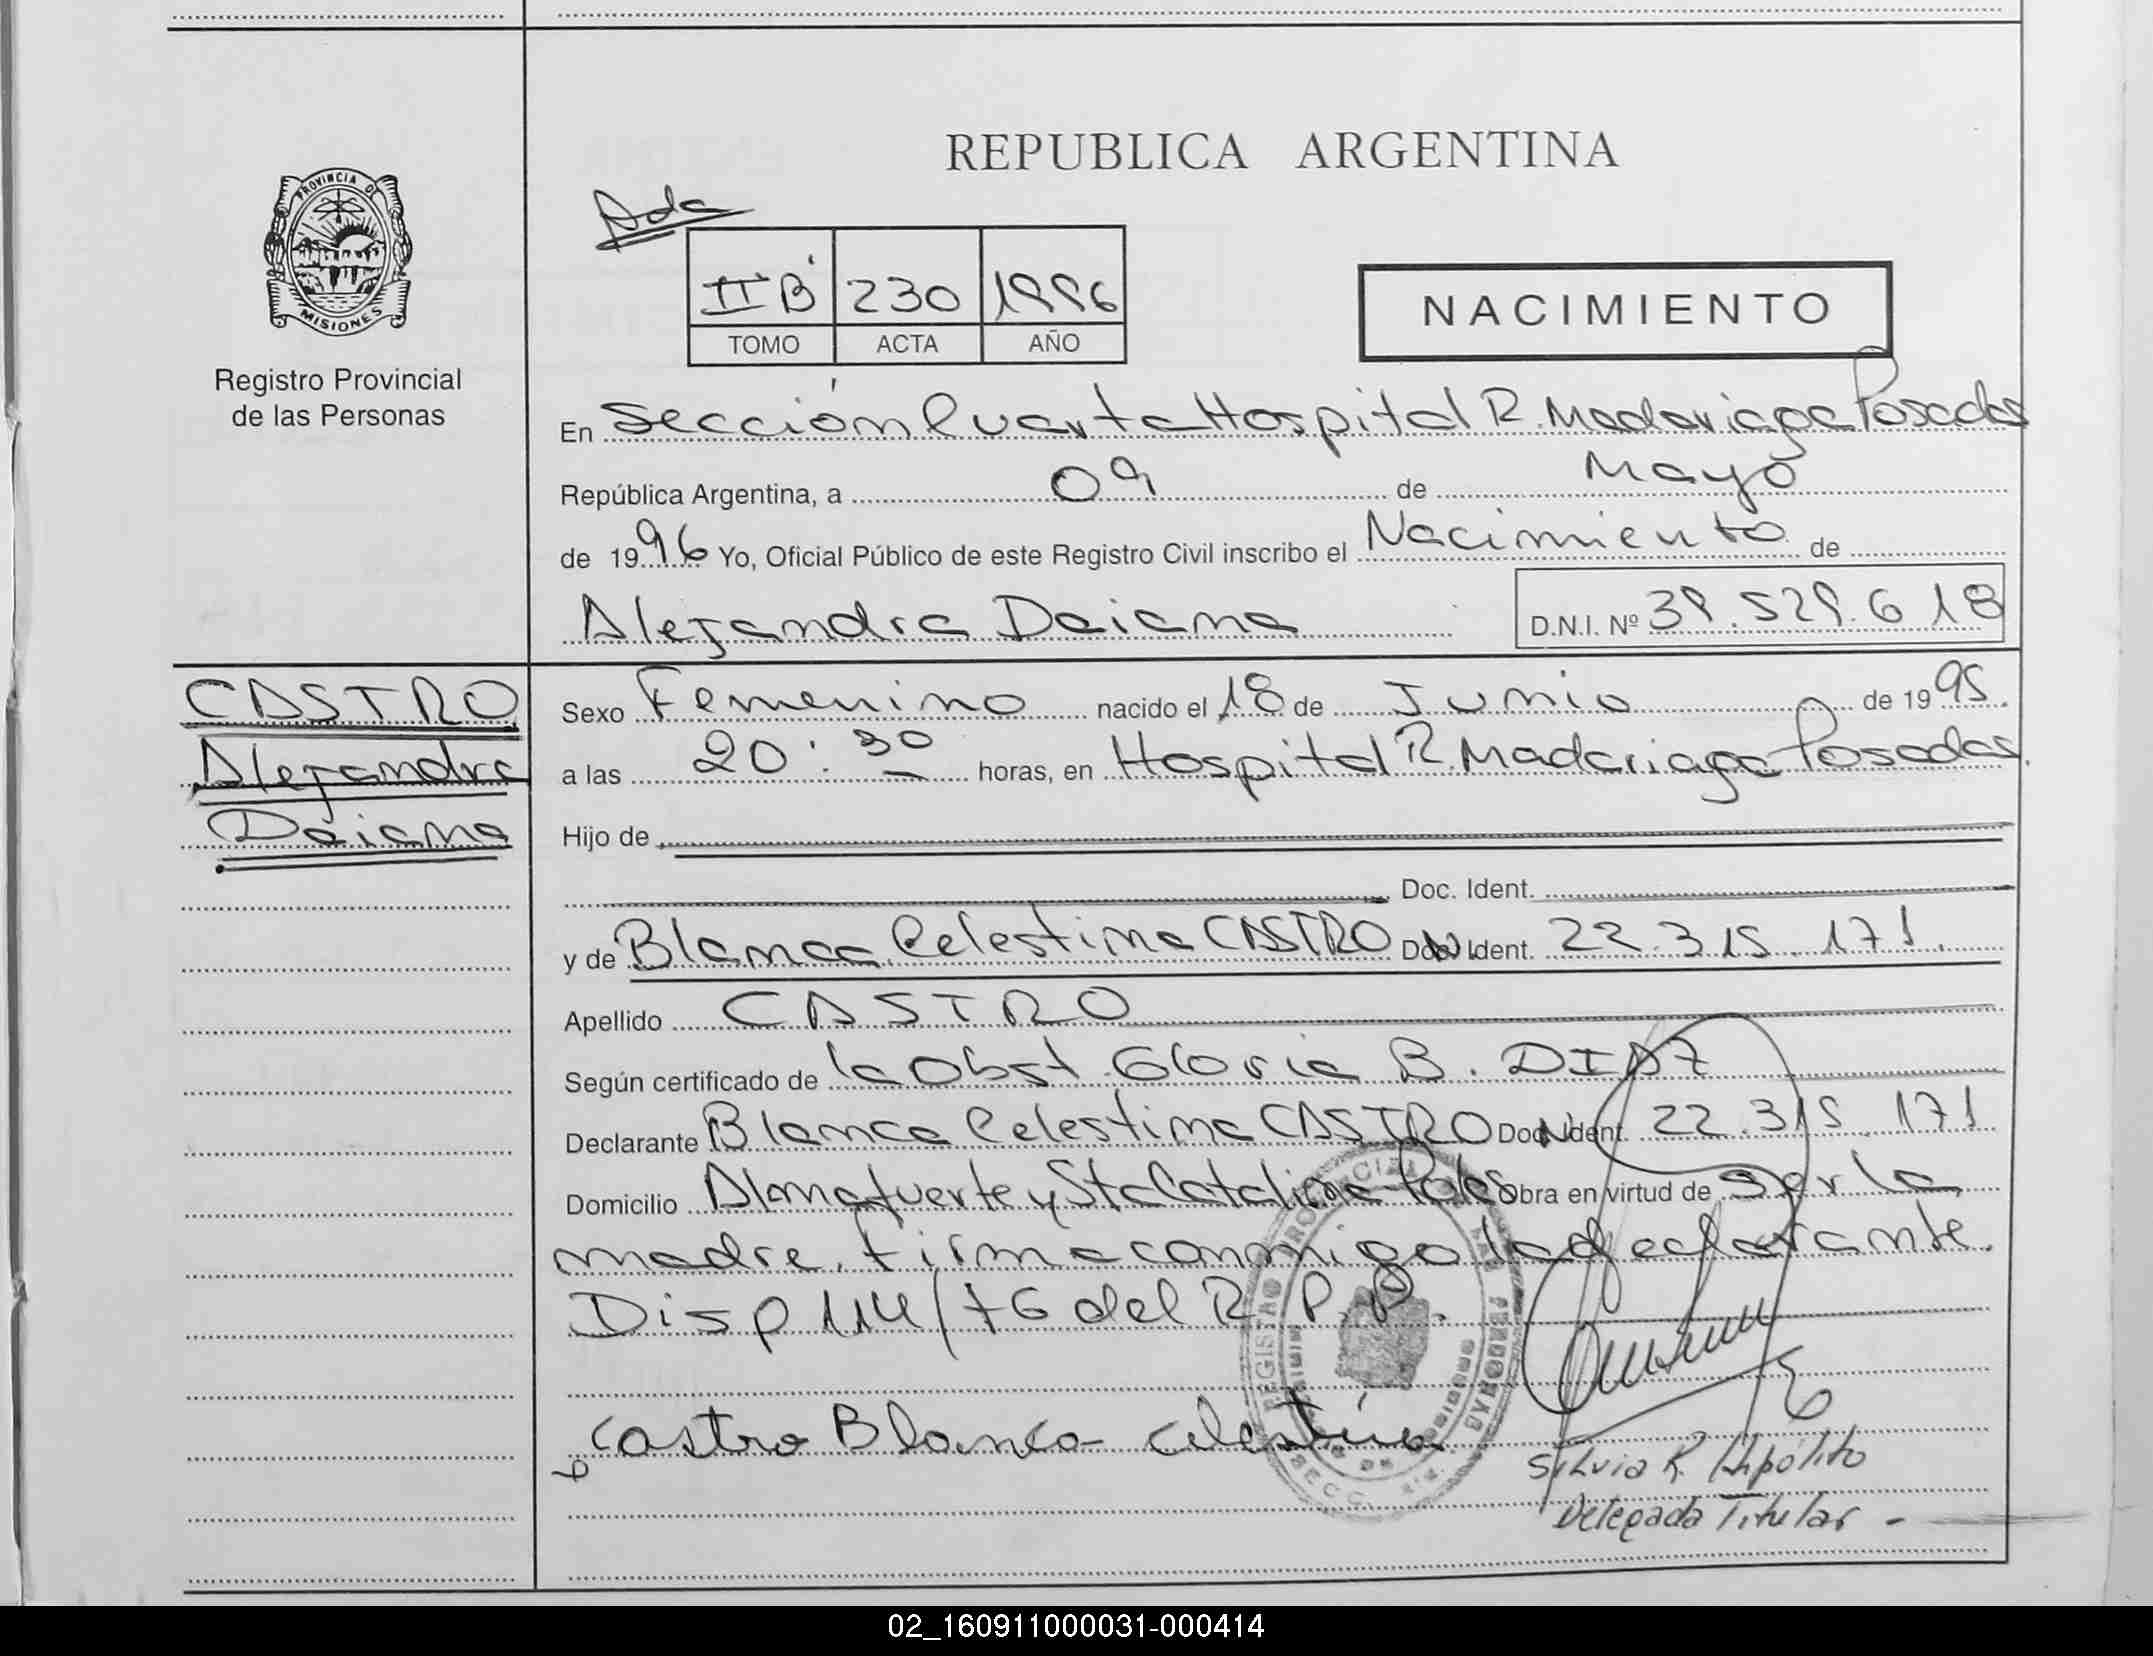 REPUBLICA ARGENTINA
Ada
II B 230 1996
TOMO ACTA AÑO
NACIMIENTO
PROVINCIA DE
MISIONES
Registro Provincial
de las Personas
En Sección Cuarta Hospital R. Madariaga Posadas
República Argentina, a 09 de Mayo
de 1996 Yo, Oficial Público de este Registro Civil inscribo el Nacimiento de
Alejandra Daiana D.N.I. Nº 39.529.618
CASTRO
Alejandra
Daiana
Sexo Femenino nacido el 18 de Junio de 1995.
a las 20:30 horas, en Hospital R. Madariaga Posadas.
Hijo de
Doc. Ident.
y de Blanca Celestina CASTRO Doc. Ident. 22.315.171.
Apellido CASTRO
Según certificado de la Obst Gloria B. DIAZ
Declarante Blanca Celestina CASTRO Doc. Ident. 22.315.171
Domicilio Almafuerte y Sta Catalina Pdas Obra en virtud de ser la
madre, firma conmigo la declarante.
Disp 114/76 del R.P.P.
Castro Blanca Celestina
Silvia R. Hipólito
Delegada Titular -
02_160911000031-000414